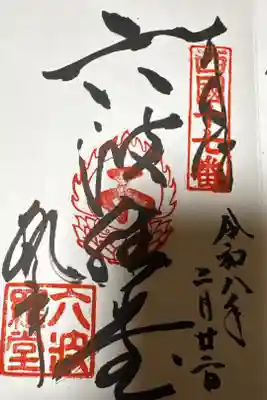 西国十七番
令和八年
二月廿二日
六波羅堂
六波
羅堂